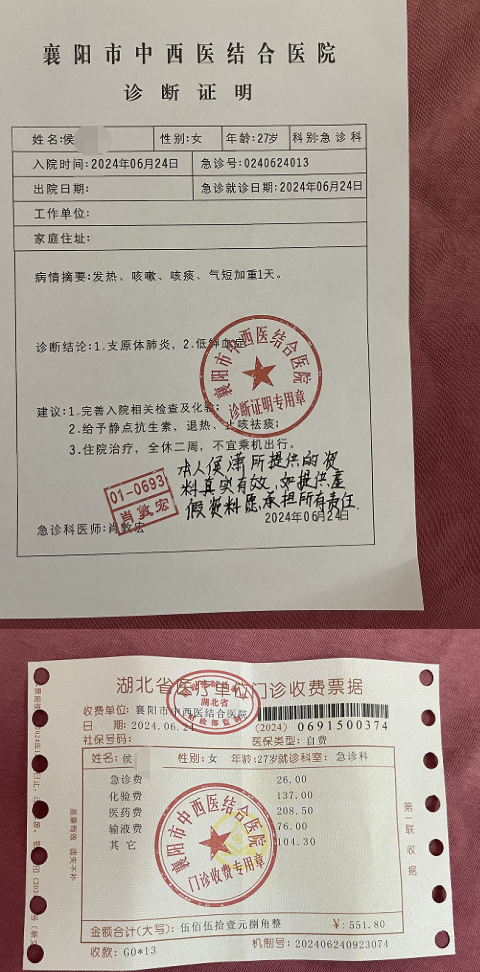 襄阳市中西医结合医院
诊断证明
姓名:侯 性别:女 年龄:27岁 科别:急诊科
入院时间:2024年06月24日 急诊号:0240624013
出院日期: 急诊就诊日期:2024年06月24日
工作单位:
家庭住址:
病情摘要:发热、咳嗽、咳痰、气短加重1天。
诊断结论:1.支原体肺炎，2.低钾血症
襄阳市中西医结合医院
诊断证明专用章
建议:1.完善入院相关检查及化验;
2.给予静点抗生素，退热、止咳祛痰;
3.住院治疗，全休二周，不宜乘机出行。
本人侯潇所提供的资
料真实有效,如提供虚
假资料愿承担所有责任.
01-0693
肖敦宏
急诊科医师:肖敦宏
2024年06月24日
湖北省医疗单位门诊收费票据
湖北省
收费单位: 襄阳市中西医结合医院
日 期: 2024.06.24
(2024) 0691500374
社保号码: 医保类型: 自费
姓名: 侯 性别: 女 年龄:27岁 就诊科室: 急诊科
急诊费 26.00
化验费 137.00
医药费 208.50
输液费 76.00
其它 104.30
襄阳市中西医结合医院
门诊收费专用章
第一联 收据
盖章有效 遗失不补
金额合计(大写): 伍佰伍拾壹元捌角整 ¥: 551.80
收款: G0*13 机制号: 202406240923074